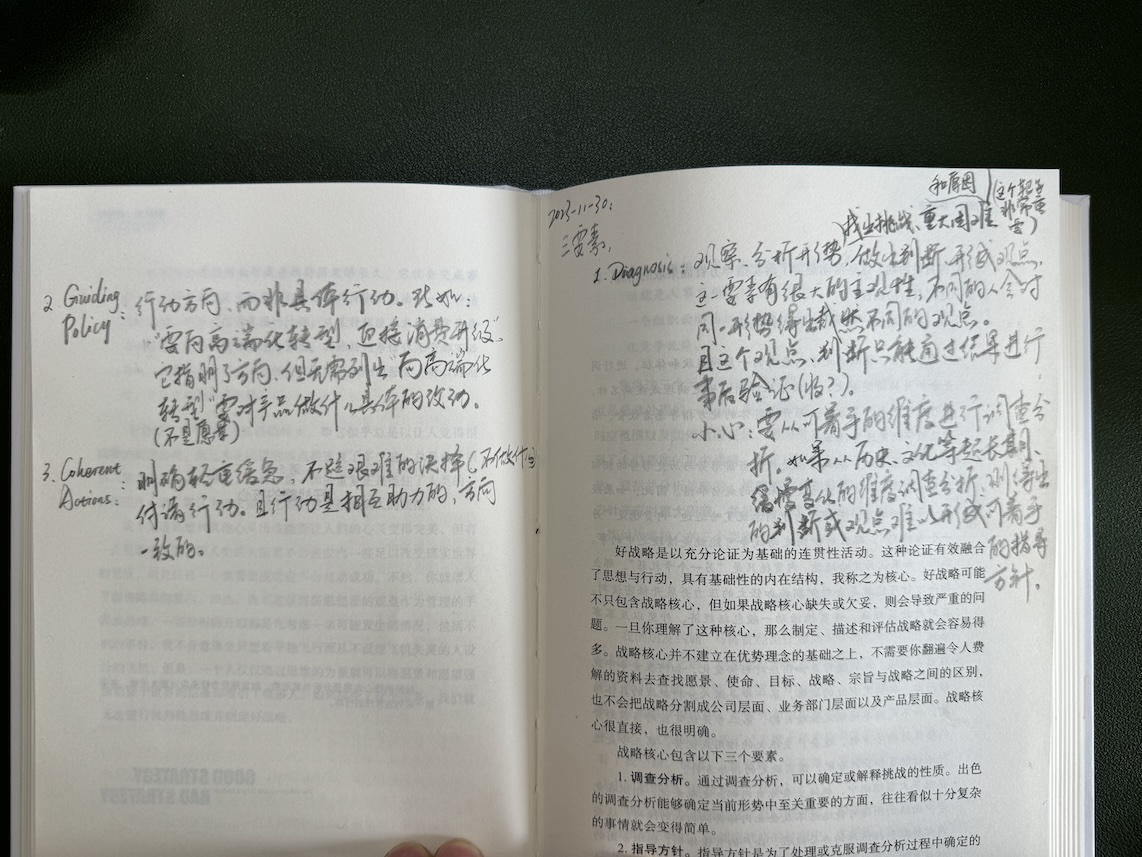 2. Guiding Policy: 行动方向,而非具体行动。比如:
"要向高端化转型,迎接消费升级"
它指明了方向,但无需列出"向高端化
转型"需对产品做什么具体的改动。
(不是愿景)
3. Coherent Actions: 明确轻重缓急,不是艰难的决择(不做什么)
付诸行动。且行动是相互助力的,方向
一致的。
GOOD STRATEGY
BAD STRATEGY
2023-11-30:
三要素:
和原因
(这个都是非常重要)
找出挑战、重大困难
1. Diagnosis: 观察、分析形势,做出判断,形成观点
这一要素有很大的主观性,不同的人会对
同一形势得出截然不同的观点。
且这个观点、判断只能通过结果进行
事后验证(收?)。
小心:要从可着手的维度进行调查分
析。如果从历史、文化等超长期、
缓慢变化的维度调查分析,则得出
的判断或观点难以形成可着手
的指导
方针。
好战略是以充分论证为基础的连贯性活动。这种论证有效融合
了思想与行动,具有基础性的内在结构,我称之为核心。好战略可能
不只包含战略核心,但如果战略核心缺失或欠妥,则会导致严重的问
题。一旦你理解了这种核心,那么制定、描述和评估战略就会容易得
多。战略核心并不建立在优势理念的基础之上,不需要你翻遍令人费
解的资料去查找愿景、使命、目标、战略、宗旨与战略之间的区别,
也不会把战略分割成公司层面、业务部门层面以及产品层面。战略核
心很直接,也很明确。
战略核心包含以下三个要素。
1. 调查分析。通过调查分析,可以确定或解释挑战的性质。出色
的调查分析能够确定当前形势中至关重要的方面,往往看似十分复杂
的事情就会变得简单。
2. 指导方针。指导方针是为了处理或克服调查分析过程中确定的